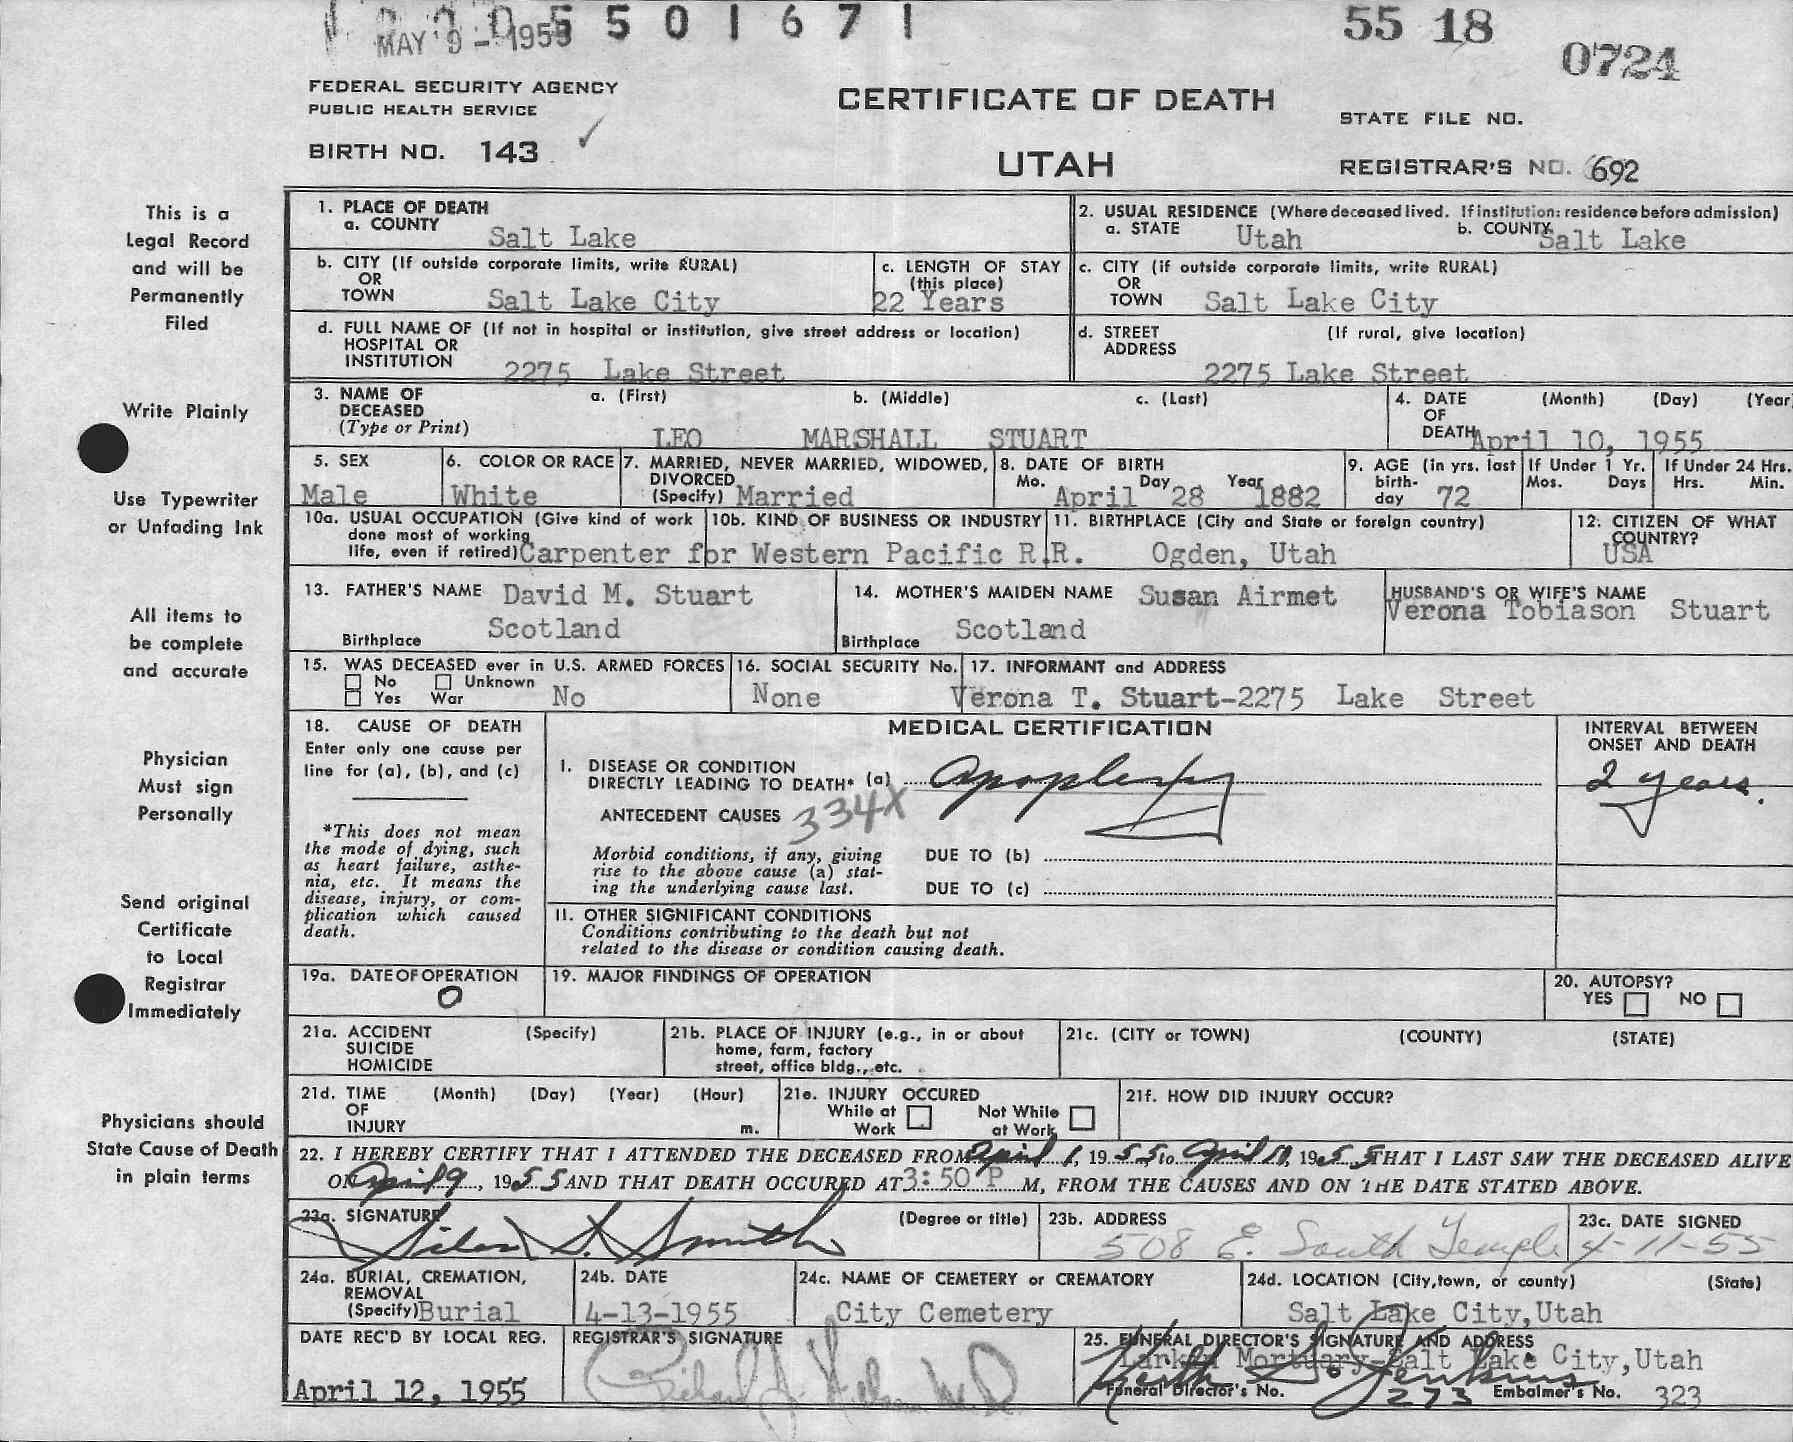 MAY 9 - 1955 5 5 0 1 6 7 1
55 18
0724
FEDERAL SECURITY AGENCY
PUBLIC HEALTH SERVICE
BIRTH NO. 143 ✓
CERTIFICATE OF DEATH
UTAH
STATE FILE NO.
REGISTRAR'S NO. 692
This is a
Legal Record
and will be
Permanently
Filed
Write Plainly
Use Typewriter
or Unfading Ink
All items to
be complete
and accurate
Physician
Must sign
Personally
Send original
Certificate
to Local
Registrar
Immediately
Physicians should
State Cause of Death
in plain terms
1. PLACE OF DEATH
a. COUNTY Salt Lake
2. USUAL RESIDENCE (Where deceased lived. If institution: residence before admission)
a. STATE Utah b. COUNTY Salt Lake
b. CITY (If outside corporate limits, write RURAL)
OR
TOWN Salt Lake City
c. LENGTH OF STAY
(this place)
22 Years
c. CITY (if outside corporate limits, write RURAL)
OR
TOWN Salt Lake City
d. FULL NAME OF (If not in hospital or institution, give street address or location)
HOSPITAL OR
INSTITUTION 2275 Lake Street
d. STREET (If rural, give location)
ADDRESS
2275 Lake Street
3. NAME OF a. (First) b. (Middle) c. (Last)
DECEASED
(Type or Print) LEO MARSHALL STUART
4. DATE (Month) (Day) (Year
OF
DEATH April 10, 1955
5. SEX
Male
6. COLOR OR RACE
White
7. MARRIED, NEVER MARRIED, WIDOWED,
DIVORCED
(Specify) Married
8. DATE OF BIRTH
Mo. Day Year
April 28 1882
9. AGE (in yrs. last
birth-
day 72
If Under 1 Yr.
Mos. Days
If Under 24 Hrs.
Hrs. Min.
10a. USUAL OCCUPATION (Give kind of work
done most of working
life, even if retired)
10b. KIND OF BUSINESS OR INDUSTRY
Carpenter for Western Pacific R.R.
11. BIRTHPLACE (City and State or foreign country)
Ogden, Utah
12. CITIZEN OF WHAT
COUNTRY?
USA
13. FATHER'S NAME David M. Stuart
Birthplace Scotland
14. MOTHER'S MAIDEN NAME Susan Airmet
Birthplace Scotland
HUSBAND'S OR WIFE'S NAME
Verona Tobiason Stuart
15. WAS DECEASED ever in U.S. ARMED FORCES
☐ No ☐ Unknown
☐ Yes War No
16. SOCIAL SECURITY No.
None
17. INFORMANT and ADDRESS
Verona T. Stuart-2275 Lake Street
18. CAUSE OF DEATH
Enter only one cause per
line for (a), (b), and (c)
*This does not mean
the mode of dying, such
as heart failure, asthe-
nia, etc. It means the
disease, injury, or com-
plication which caused
death.
MEDICAL CERTIFICATION
INTERVAL BETWEEN
ONSET AND DEATH
I. DISEASE OR CONDITION
DIRECTLY LEADING TO DEATH* (a) Apoplexy
2 years.
ANTECEDENT CAUSES 334X
Morbid conditions, if any, giving
rise to the above cause (a) stat-
ing the underlying cause last.
DUE TO (b)
DUE TO (c)
II. OTHER SIGNIFICANT CONDITIONS
Conditions contributing to the death but not
related to the disease or condition causing death.
19a. DATE OF OPERATION
0
19. MAJOR FINDINGS OF OPERATION
20. AUTOPSY?
YES ☐ NO ☐
21a. ACCIDENT (Specify)
SUICIDE
HOMICIDE
21b. PLACE OF INJURY (e.g., in or about
home, farm, factory
street, office bldg., etc.
21c. (CITY or TOWN) (COUNTY) (STATE)
21d. TIME (Month) (Day) (Year) (Hour)
OF
INJURY m.
21e. INJURY OCCURED
While at Work ☐ Not While at Work ☐
21f. HOW DID INJURY OCCUR?
22. I HEREBY CERTIFY THAT I ATTENDED THE DECEASED FROM April 1, 1955 to April 10, 1955 THAT I LAST SAW THE DECEASED ALIVE
ON April 9, 1955 AND THAT DEATH OCCURED AT 3:50 P M, FROM THE CAUSES AND ON THE DATE STATED ABOVE.
23a. SIGNATURE (Degree or title)
Silas S. Smith
23b. ADDRESS
508 E. South Temple
23c. DATE SIGNED
4-11-55
24a. BURIAL, CREMATION,
REMOVAL
(Specify) Burial
24b. DATE
4-13-1955
24c. NAME OF CEMETERY or CREMATORY
City Cemetery
24d. LOCATION (City, town, or county) (State)
Salt Lake City, Utah
DATE REC'D BY LOCAL REG.
April 12, 1955
REGISTRAR'S SIGNATURE
25. FUNERAL DIRECTOR'S SIGNATURE AND ADDRESS
Larkin Mortuary-Salt Lake City, Utah
Keith S. Jenkins
Funeral Director's No. 273 Embalmer's No. 323